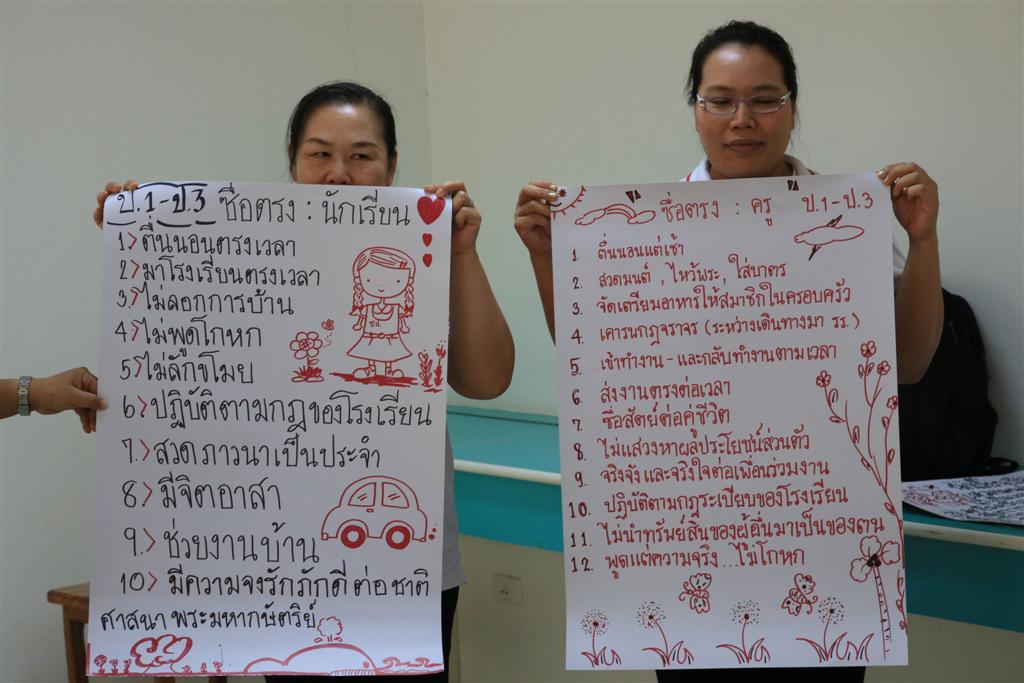 ป.1-ป.3 ซื่อตรง : นักเรียน
1> ตื่นนอนตรงเวลา
2> มาโรงเรียนตรงเวลา
3> ไม่ลอกการบ้าน
4> ไม่พูดโกหก
5> ไม่ลักขโมย
6> ปฏิบัติตามกฎของโรงเรียน
7.> สวดภาวนาเป็นประจำ
8> มีจิตอาสา
9.> ช่วยงานบ้าน
10> มีความจงรักภักดีต่อชาติ
ศาสนา พระมหากษัตริย์
ซื่อตรง : ครู ป.1-ป.3
1. ตื่นนอนแต่เช้า
2. สวดมนต์, ไหว้พระ, ใส่บาตร
3. จัดเตรียมอาหารให้สมาชิกในครอบครัว
4. เคารบกฎจราจร (ระหว่างเดินทางมา รร.)
5. เข้าทำงาน-และกลับทำงานตามเวลา
6. ส่งงานตรงต่อเวลา
7. ซื่อสัตย์ต่อคู่ชีวิต
8. ไม่แสวงหาผลประโยชน์ส่วนตัว
9. จริงจังและจริงใจต่อเพื่อนร่วมงาน
10. ปฏิบัติตามกฎระเบียบของโรงเรียน
11. ไม่นำทรัพย์สินของผู้อื่นมาเป็นของตน
12. พูดแต่ความจริง...ไม่โกหก